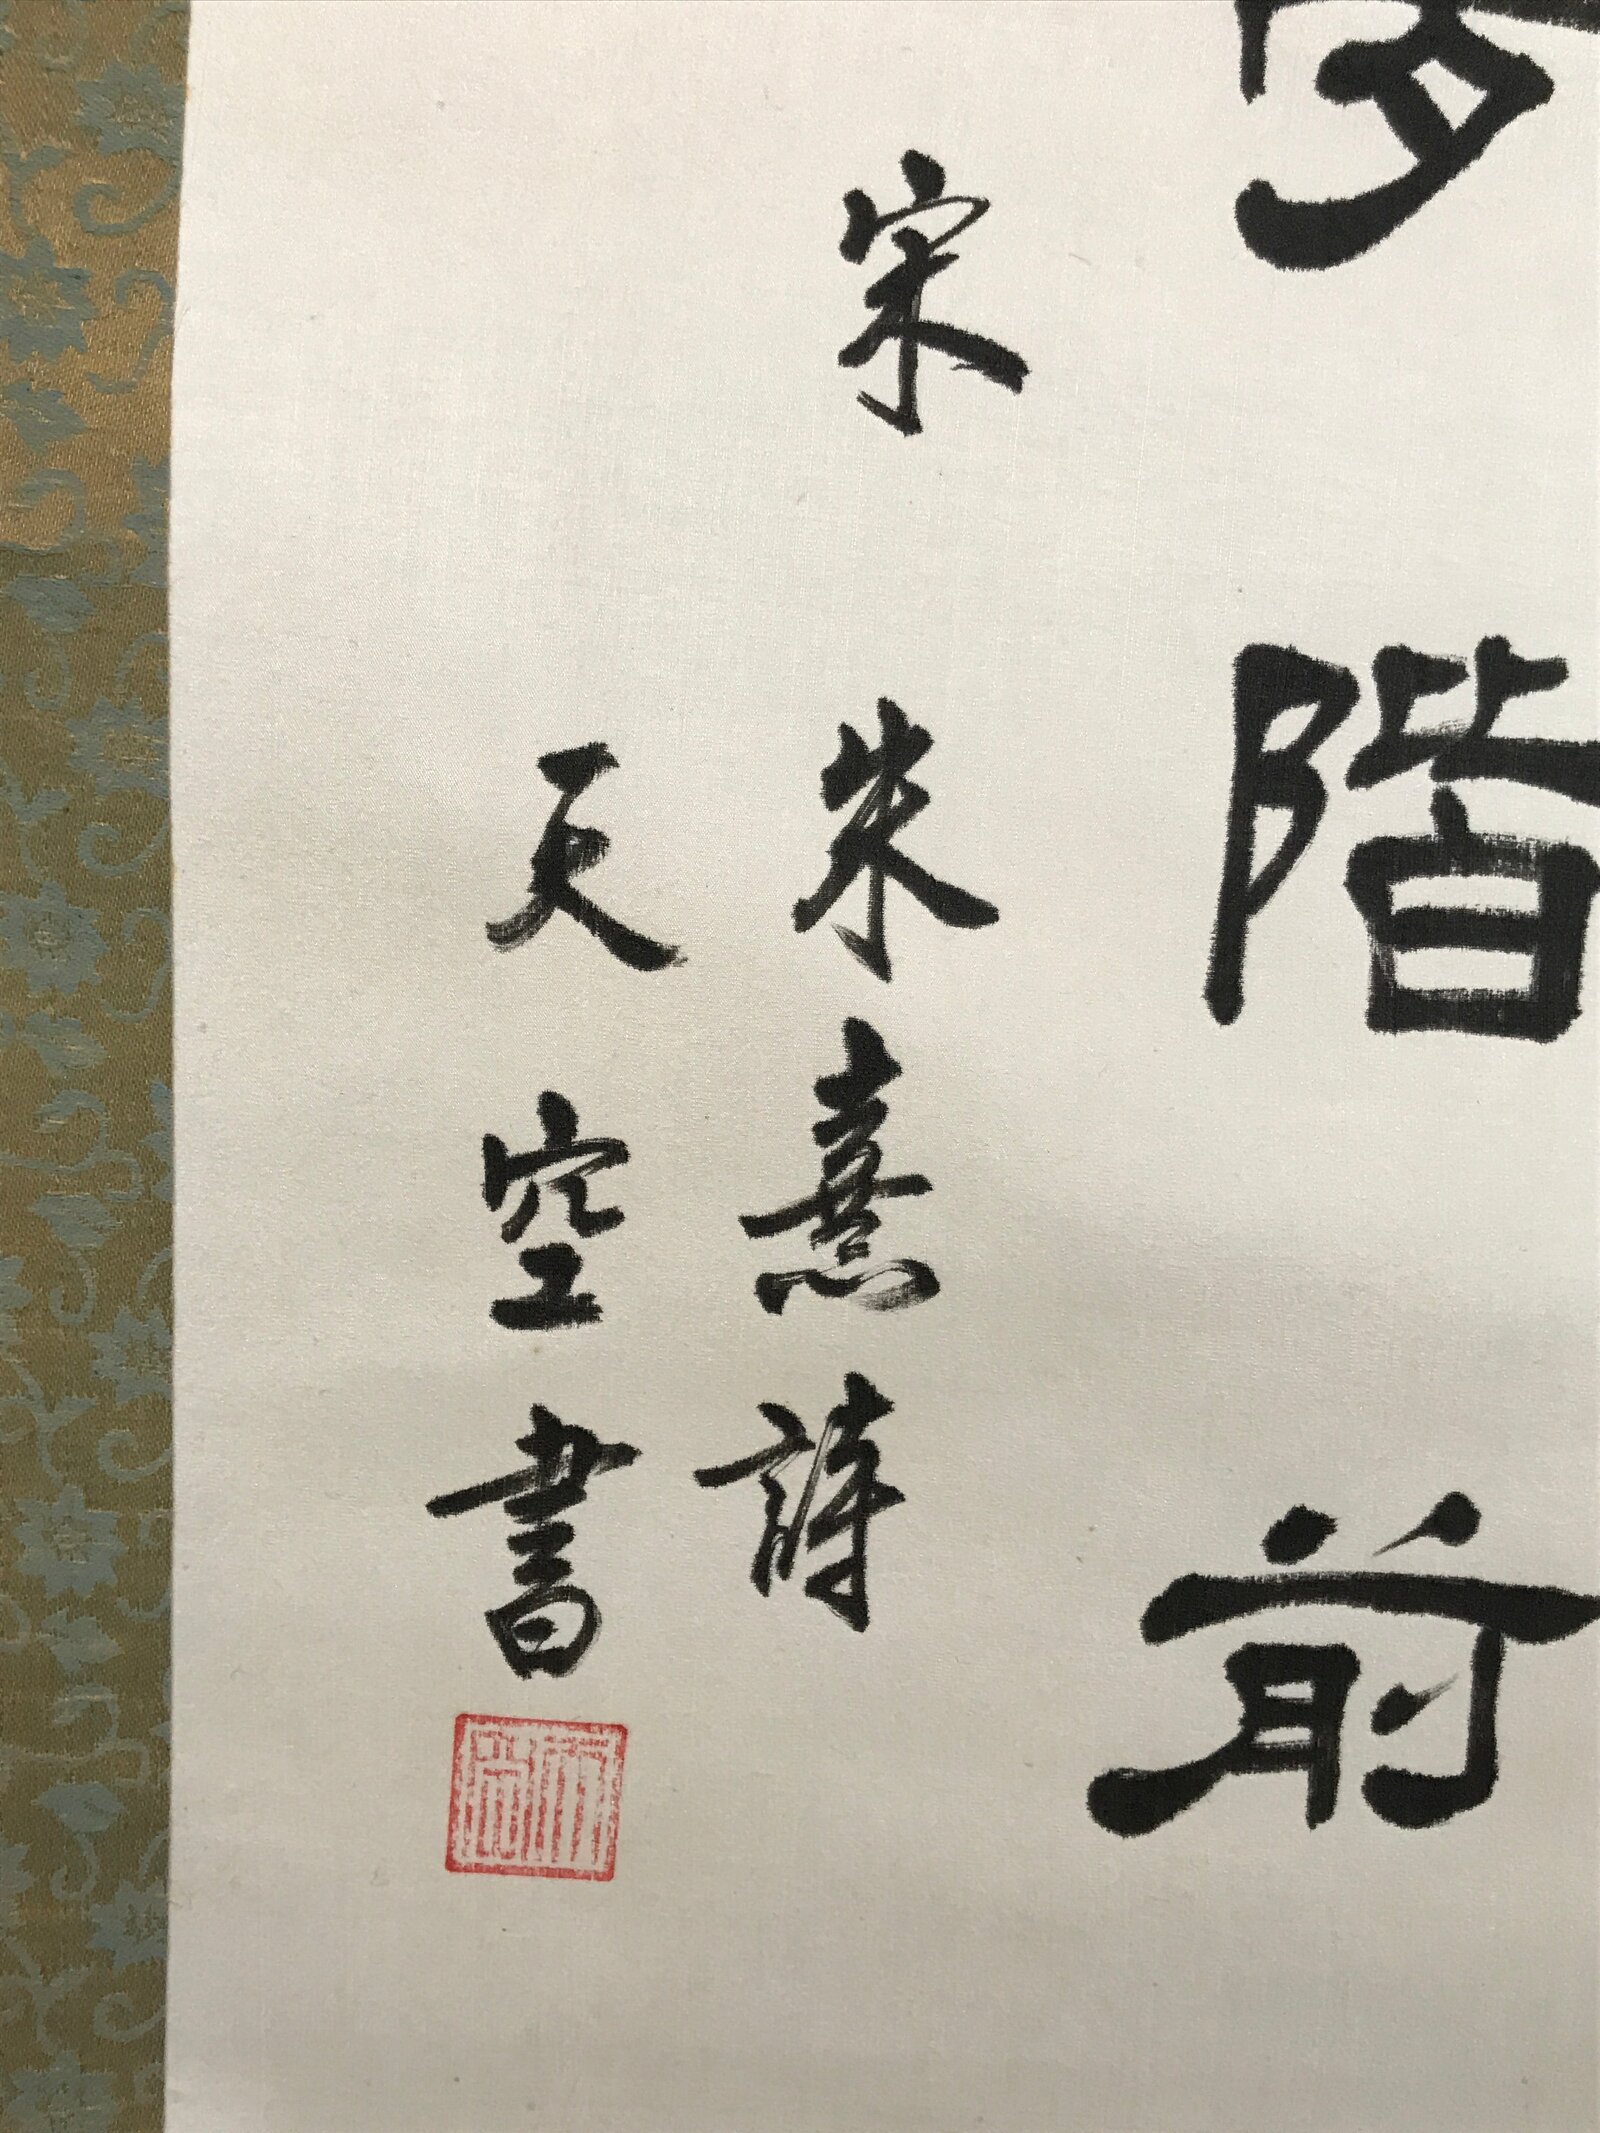 夢階前
宋朱熹詩
天空書